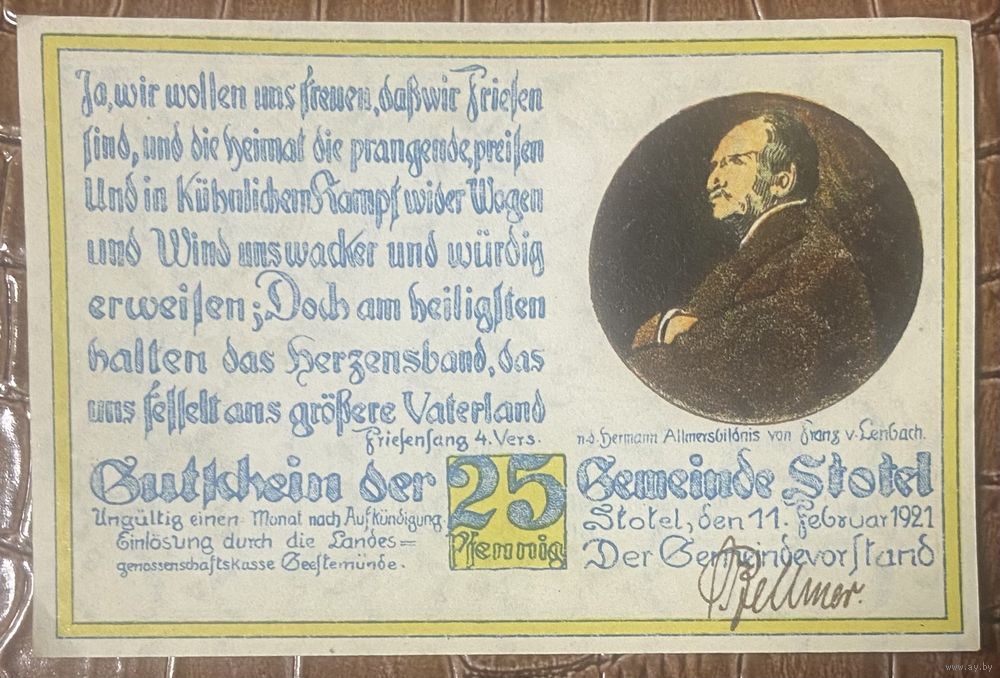 Ja, wir wollen uns freuen, daß wir Friesen
sind, und die Heimat die prangende, preisen
Und in Kühnlichem Kampf wider Wogen
und Wind uns wacker und würdig
erweisen; Doch am heiligsten
halten das Herzensband, das
uns fesselt ans größere Vaterland
Friesensang 4. Vers.
n.d. Hermann Allmersbildnis von Franz v. Lenbach.
Gutschein der 25 Gemeinde Stotel
Pfennig
Ungültig einen Monat nach Aufkündigung
Einlösung durch die Landes=
genossenschaftskasse Geestemünde.
Stotel, den 11. Februar 1921
Der Gemeindevorstand
www.ay.by